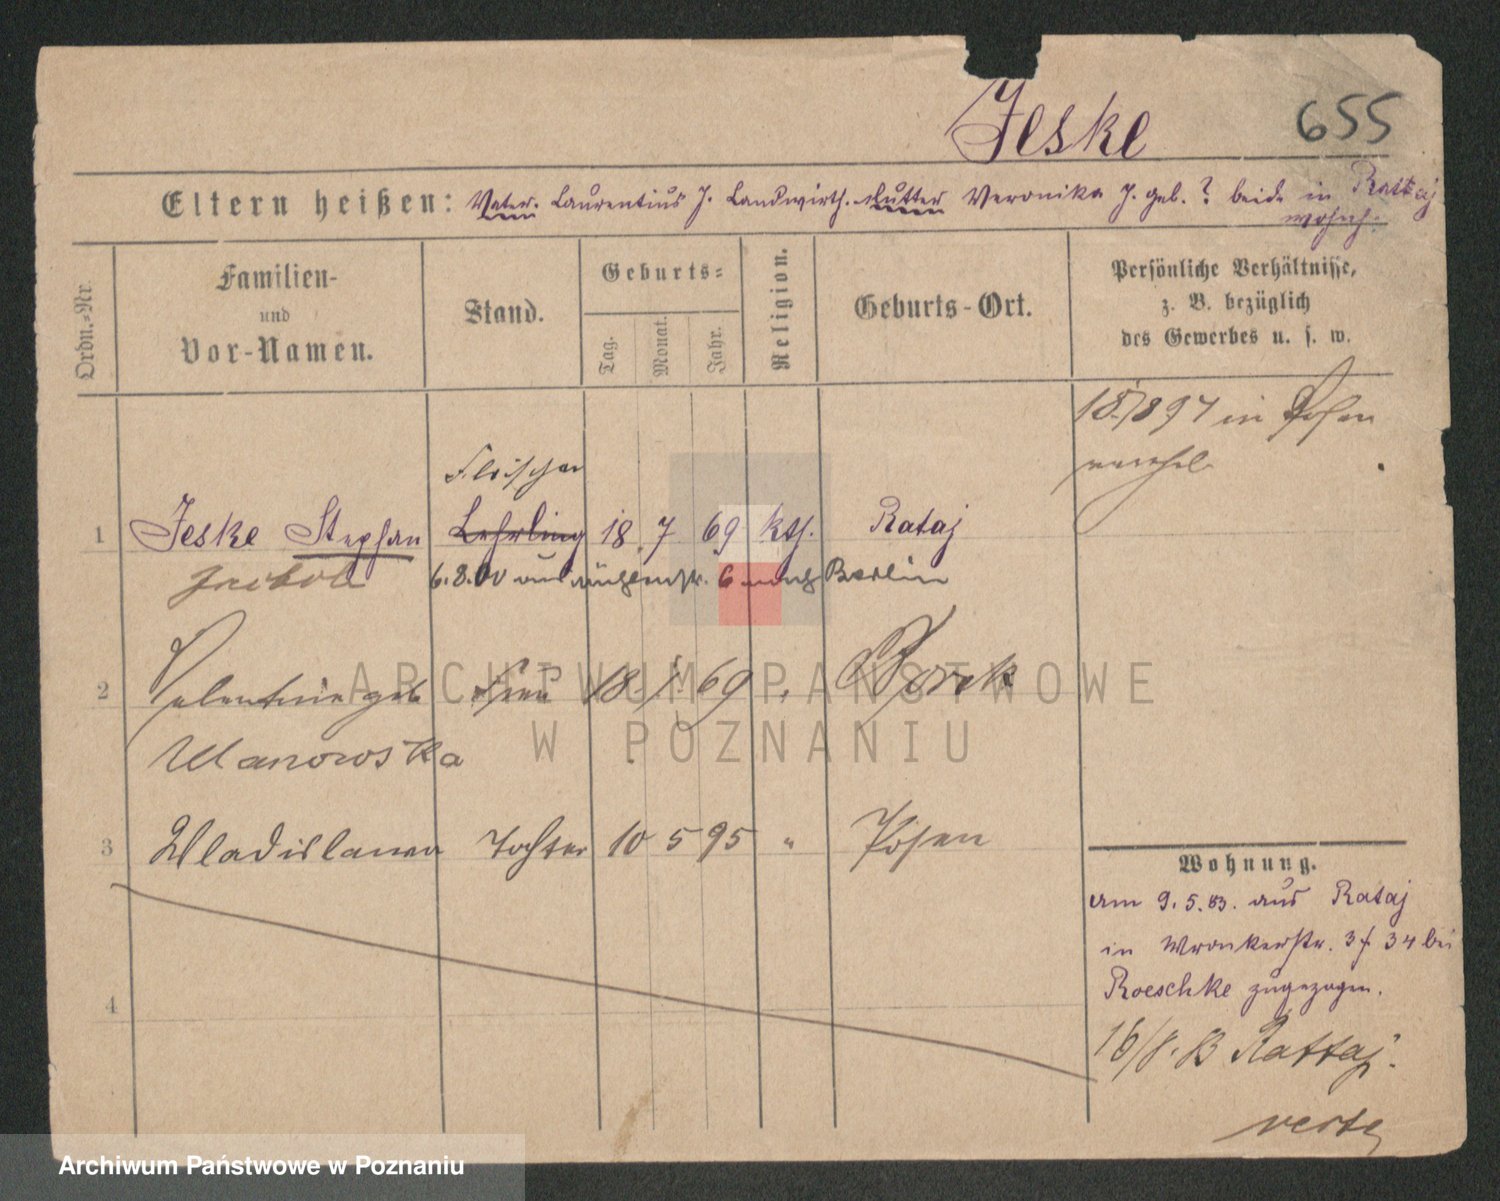 Jeske 655
Eltern heißen: Vater. Laurentius J. Landwirth. Mutter Veronika J. geb. ? beide in Rattaj
wohnh.
Ordn.=Nr.
Familien-
und
Vor-Namen.
Stand.
Geburts=
Tag.
Monat.
Jahr.
Religion.
Geburts-Ort.
Persönliche Verhältnisse,
z. B. bezüglich
des Gewerbes u. s. w.
in Posen
Fleischer
1 Jeske Stephan Lehrling 18. 7 69 kth. Rataj
Jakob 6.8.00 aus 6 nach Berlin
2 Valentine geb Frau 18. 69 Borek
Ulanowska
3 Wladislawa Tochter 10 5 95 " Posen
4
Wohnung.
am 9.5.83. aus Rataj
in Wronkerstr. 34 bei
Roeschke zugezogen.
16/8. Rattaj.
verte
ARCHIWUM PAŃSTWOWE
W POZNANIU
Archiwum Państwowe w Poznaniu